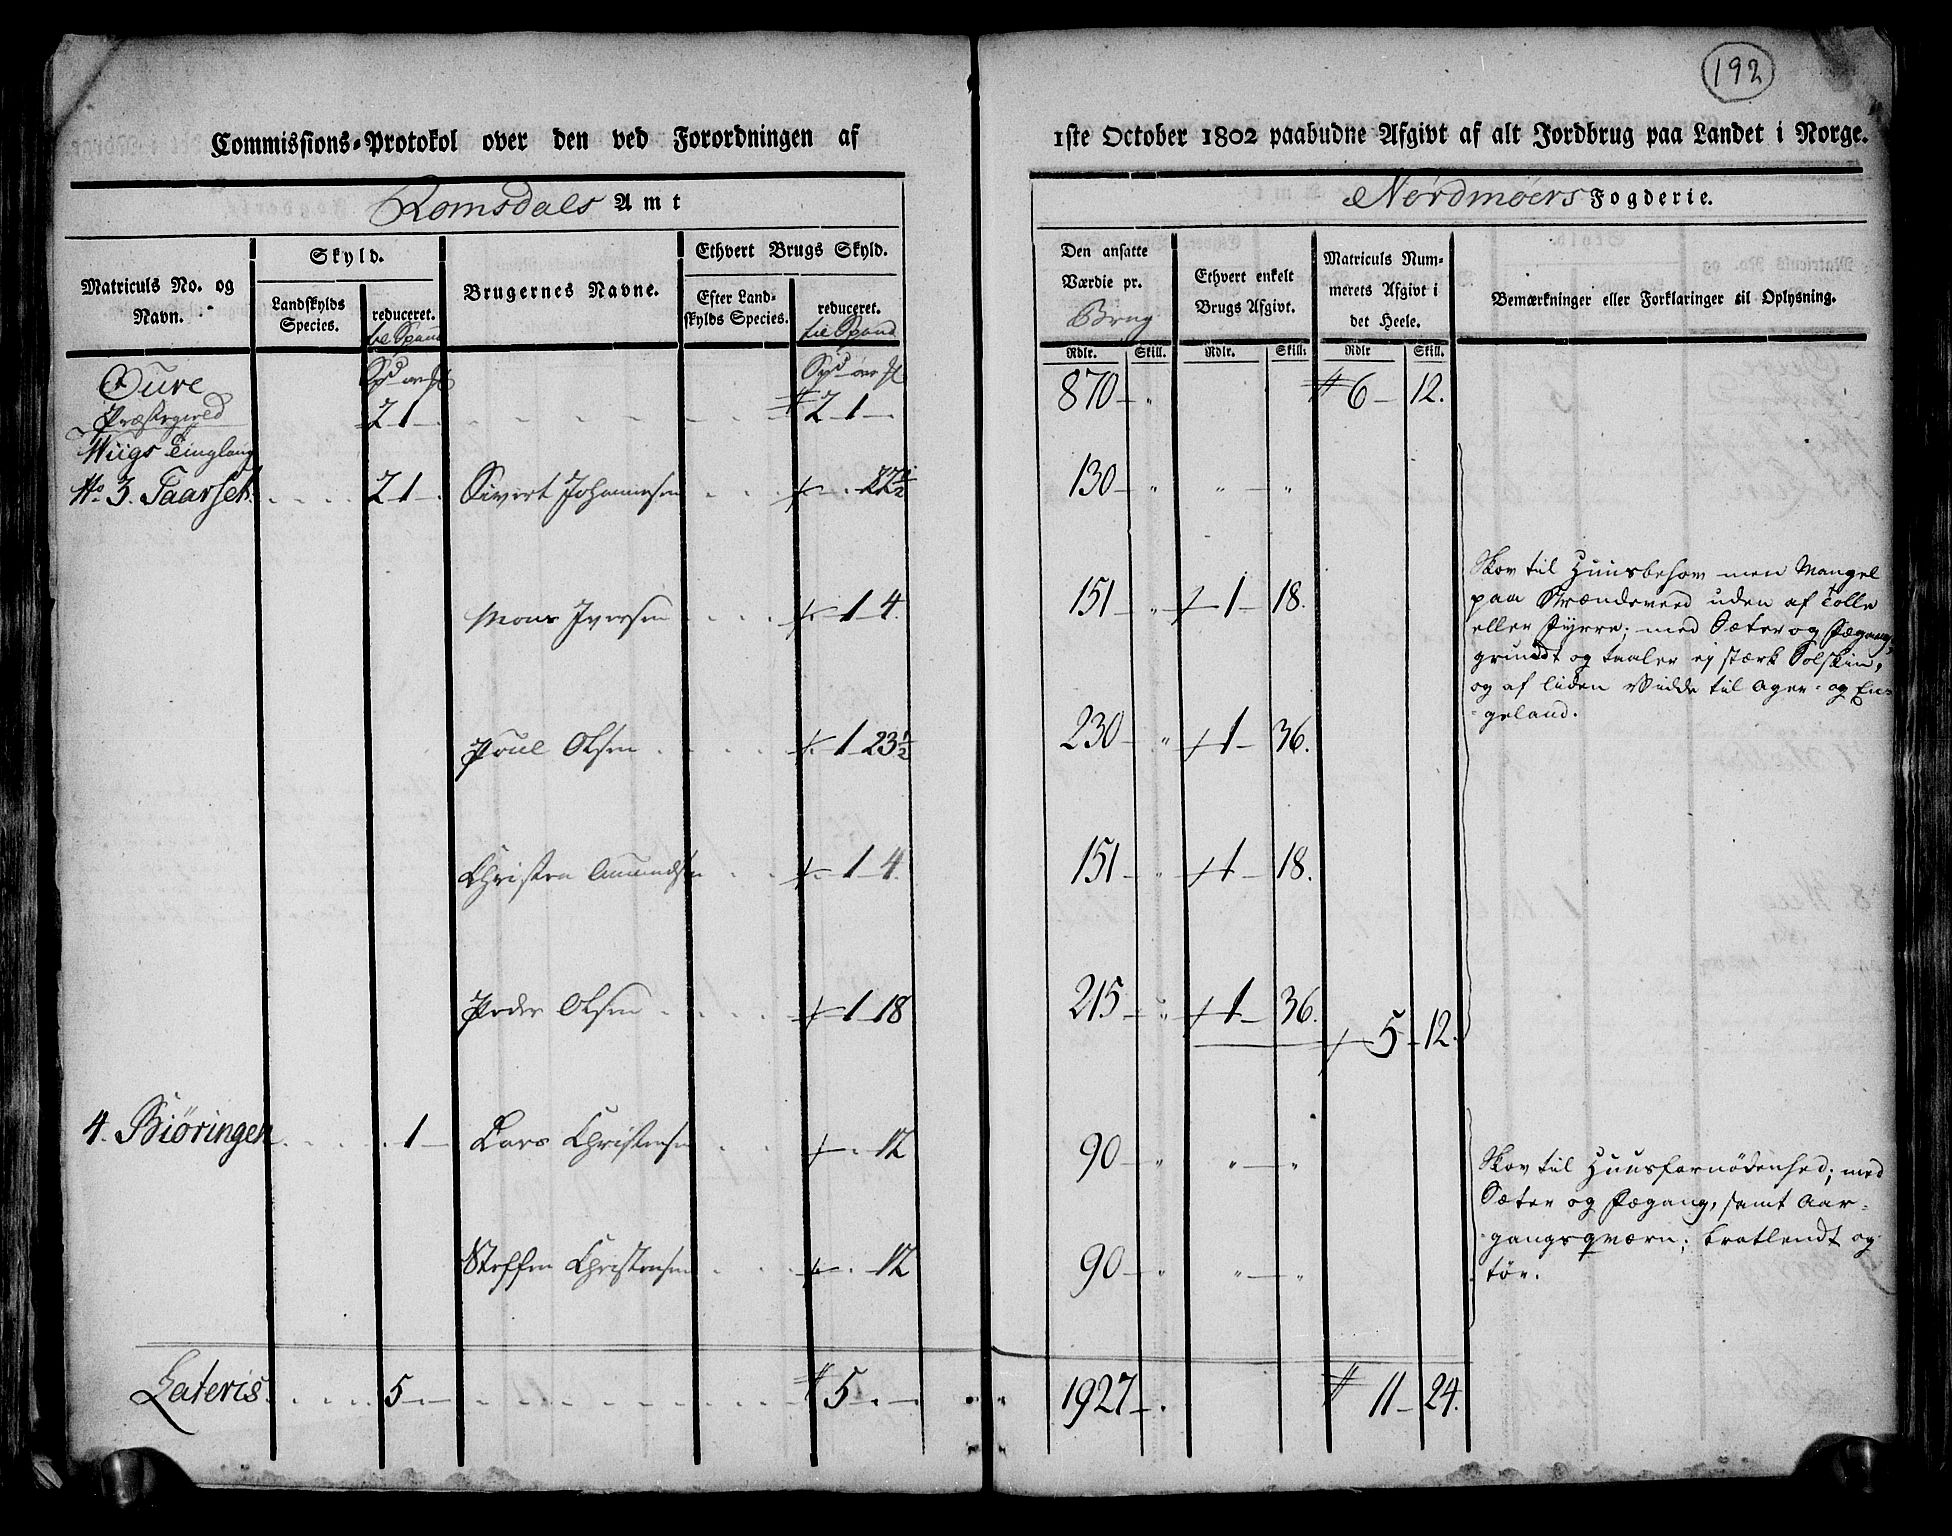 192
Commissions-Protokol over den ved Forordningen af 1ste October 1802 paabudne Afgivt af alt Jordbrug paa Landet i Norge.
Romsdals Amt Nordmøers Fogderie.
Matriculs No. og Navn.
Skyld.
Landskylds Species.
reduceret.
til Spand
Brugernes Navne.
Ethvert Brugs Skyld.
Efter Landskylds Species.
reduceret.
til Spand
Den ansatte Værdie pr.
Brug
Ethvert enkelt Brugs Afgivt.
Matriculs Nummerets Afgivt i det Heele.
Bemærkninger eller Forklaringer til Oplysning.
Rdlr. Skill. Rdlr. Skill. Rdlr Skill.
Oure
Præstegield 2 1 2 1 870 6 12.
Wiigs Tinglaug
No 3. Taarset. 2 1 Sivert Johannesen 22½ 130
Mons Iversen 1 4. 151 1 18.
Skov til Huusbehov men Mangel
paa Brændeveed uden af Tolle
eller Fyrre; med Sæter og Fægang,
grundt og taaler ej stærk Solskin,
og af liden Vidde til Ager- og En-
geland.
Poul Olsen 1 23½ 230 1 36.
Christen Amundsen 1 4. 151 1 18.
Peder Olsen 1 18 215 1 36.
5 12.
4. Biøringen 1 Lars Christensen 12 90
Skov til Huusfornødenhed; med
Sæter og Fægang, samt Aar-
gangsqværn; bratlendt og
tør.
Steffen Christensen 12 90
Lateris. 5 5 1927 11 24.